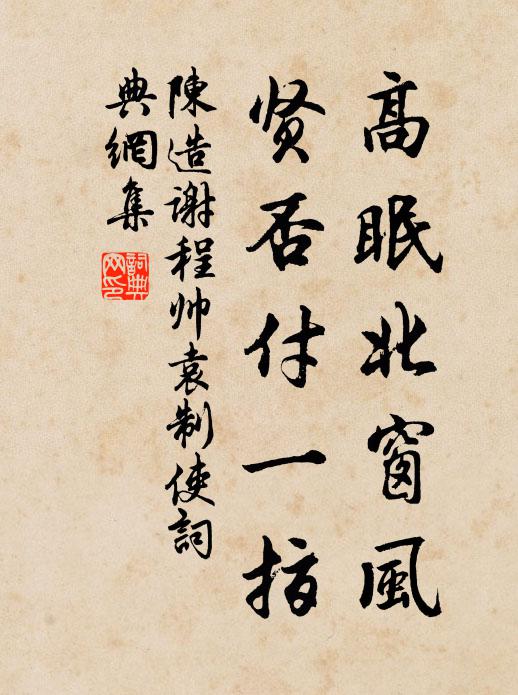 高眠北窗風
贤否付一指
陳造谢程帅袁制使詞
典網集
詞典
网印